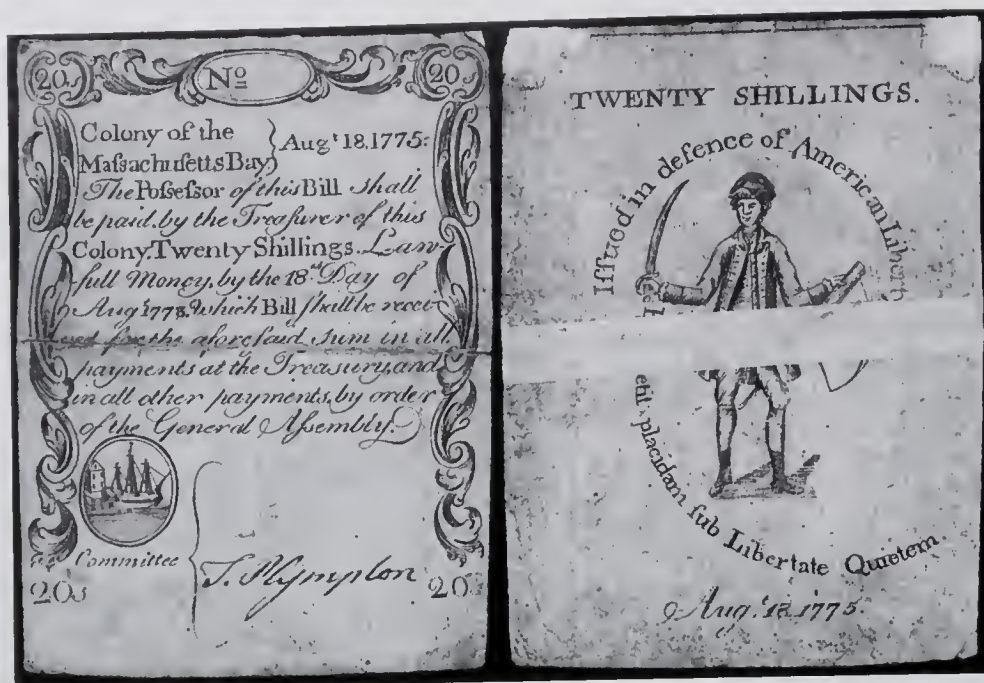 20s
No
20s
Colony of the
Maſsachusetts Bay
Augt 18. 1775:
The Poſseſsor of this Bill shall
be paid by the Treaſurer of this
Colony. Twenty Shillings. Law-
full Money, by the 18th Day of
Augt 1778. Which Bill ſhall be recei-
ved for the aforeſaid Sum in all
payments at the Treasury, and
in all other payments, by order
of the General Aſsembly.
Committee
J. Plympton
20s
20s
TWENTY SHILLINGS.
Iſſued in defence of American Libert
placidam ſub Libertate Quietem
Augt 18. 1775.